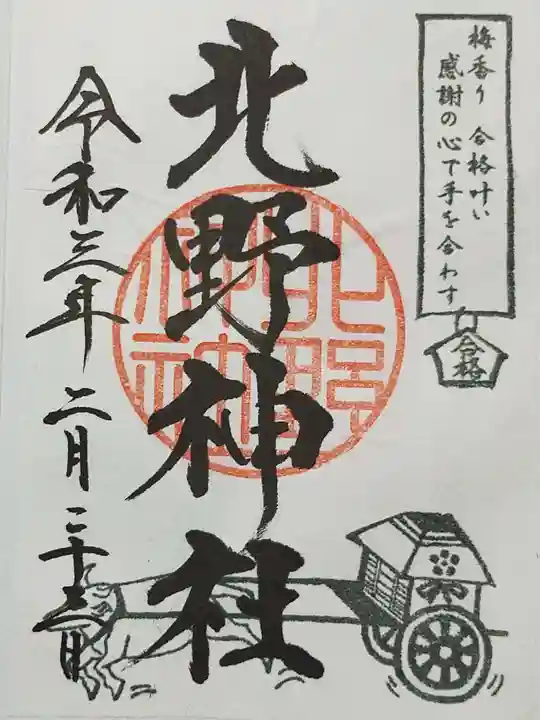 梅香り 合格叶い
感謝の心で手を合わす
合格
北野神社
北野神社
令和三年 二月 二十三日